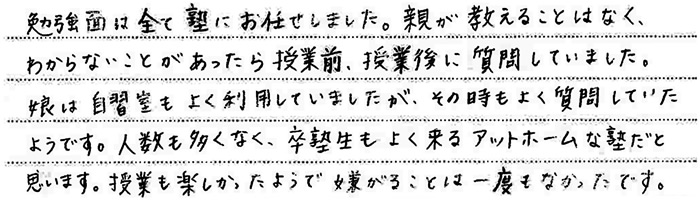 勉強面は全て塾にお任せしました。親が教えることはなく、
わからないことがあったら授業前、授業後に質問していました。
娘は自習室もよく利用していましたが、その時もよく質問していた
ようです。人数も多くなく、卒塾生もよく来るアットホームな塾だと
思います。授業も楽しかったようで嫌がることは一度もなかったです。